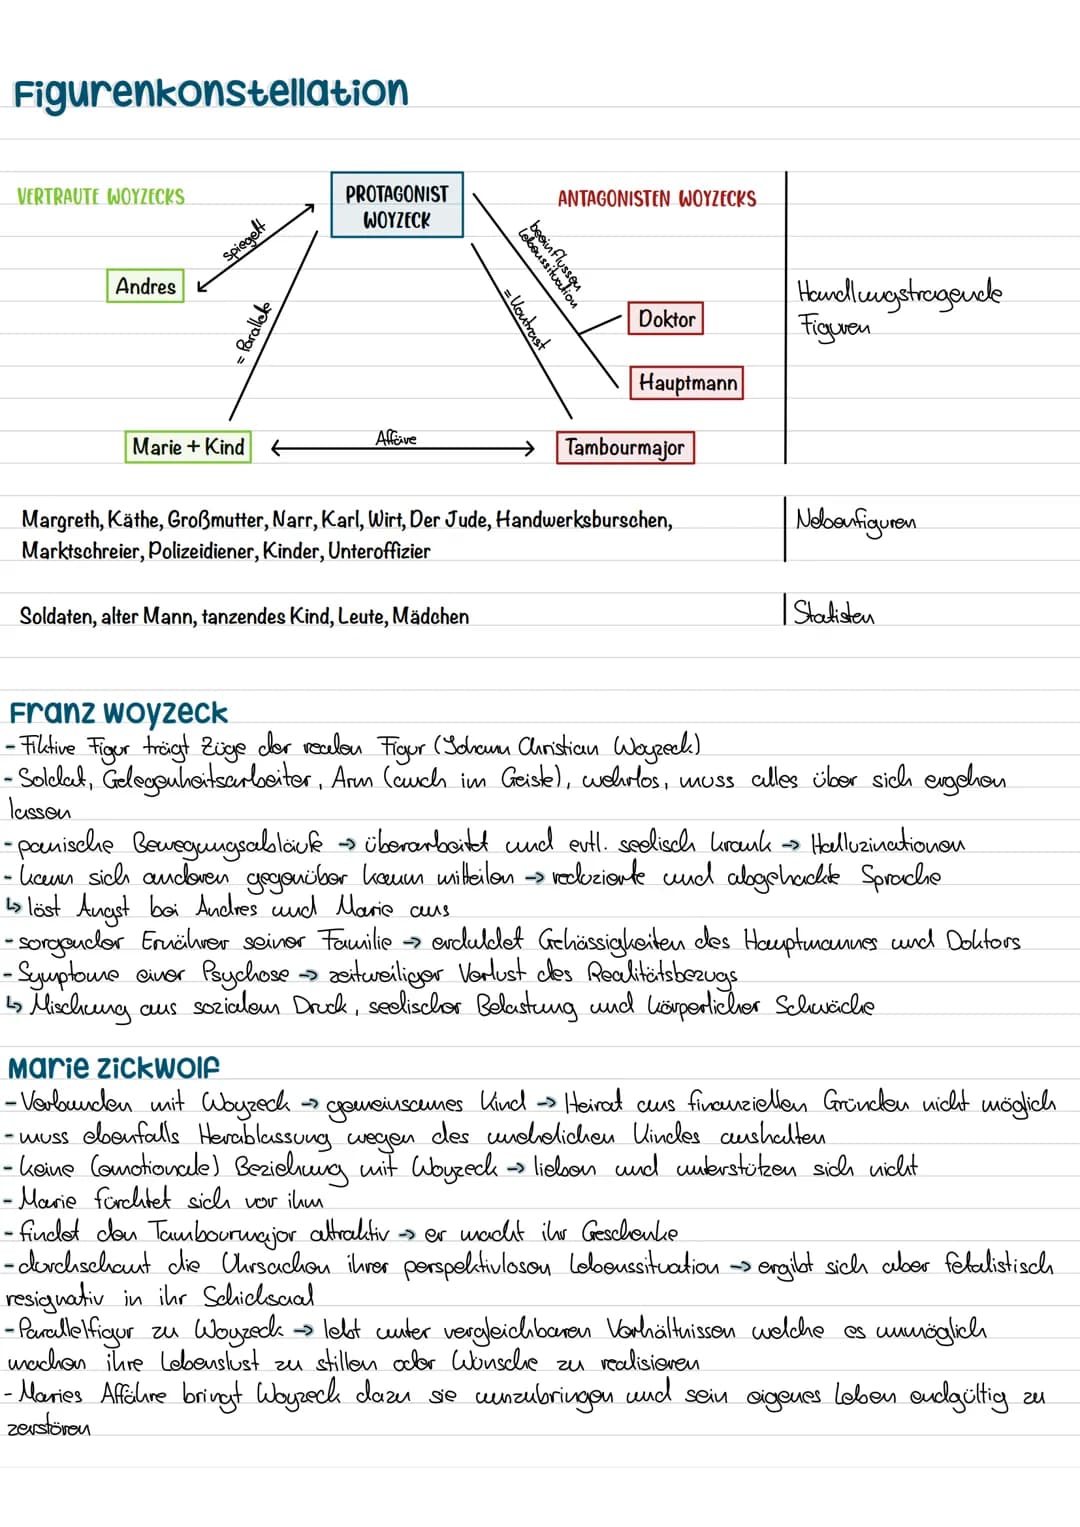 Figurenkonstellation
VERTRAUTE WOYZECKS
PROTAGONIST
WOYZECK
ANTAGONISTEN WOYZECKS
spiegelt
beeinflussen
Lebenssituation
Andres
= Parallele
= Kontrast
Doktor
Hauptmann
Handlungstragende
Figuren
Marie + Kind
Affäre
Tambourmajor
Margreth, Käthe, Großmutter, Narr, Karl, Wirt, Der Jude, Handwerksburschen,
Marktschreier, Polizeidiener, Kinder, Unteroffizier
Nebenfiguren
Soldaten, alter Mann, tanzendes Kind, Leute, Mädchen
Statisten
Franz Woyzeck
- Fiktive Figur trägt Züge der realen Figur (Johann Christian Woyzeck)
- Soldat, Gelegenheitsarbeiter, Arm (auch im Geiste), wehrlos, muss alles über sich ergehen
lassen
- panische Bewegungsabläufe → überarbeitet und evtl. seelisch krank → Halluzinationen
- kann sich anderen gegenüber kaum mitteilen → reduzierte und abgehackte Sprache
↳ löst Angst bei Andres und Marie aus
- sorgender Ernährer seiner Familie → erduldet Gehässigkeiten des Hauptmannes und Doktors
- Symptome einer Psychose → zeitweiliger Verlust des Realitätsbezugs
↳ Mischung aus sozialem Druck, seelischer Belastung und körperlicher Schwäche
Marie Zickwolf
- Verbunden mit Woyzeck → gemeinsames Kind → Heirat aus finanziellen Gründen nicht möglich
- muss ebenfalls Herablassung wegen des unehelichen Kindes aushalten
- keine (emotionale) Beziehung mit Woyzeck → lieben und unterstützen sich nicht
- Marie fürchtet sich vor ihm
- findet den Tambourmajor attraktiv → er macht ihr Geschenke
- durchschaut die Uhrsachen ihrer perspektivlosen Lebenssituation → ergibt sich aber fetalistisch
resignativ in ihr Schicksaal
- Parallelfigur zu Woyzeck → lebt unter vergleichbaren Verhältnissen welche es unmöglich
machen ihre Lebenslust zu stillen oder Wünsche zu realisieren
- Maries Affähre bringt Woyzeck dazu sie umzubringen und sein eigenes Leben endgültig zu
zerstören